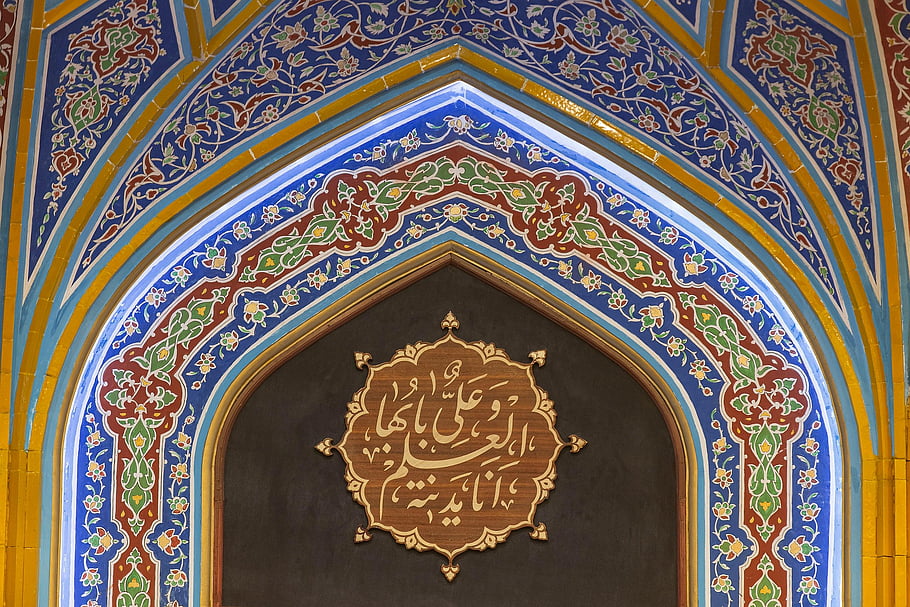 اَنَا مَدینَة
العِلم
وَ عَلیٌّ بابُها